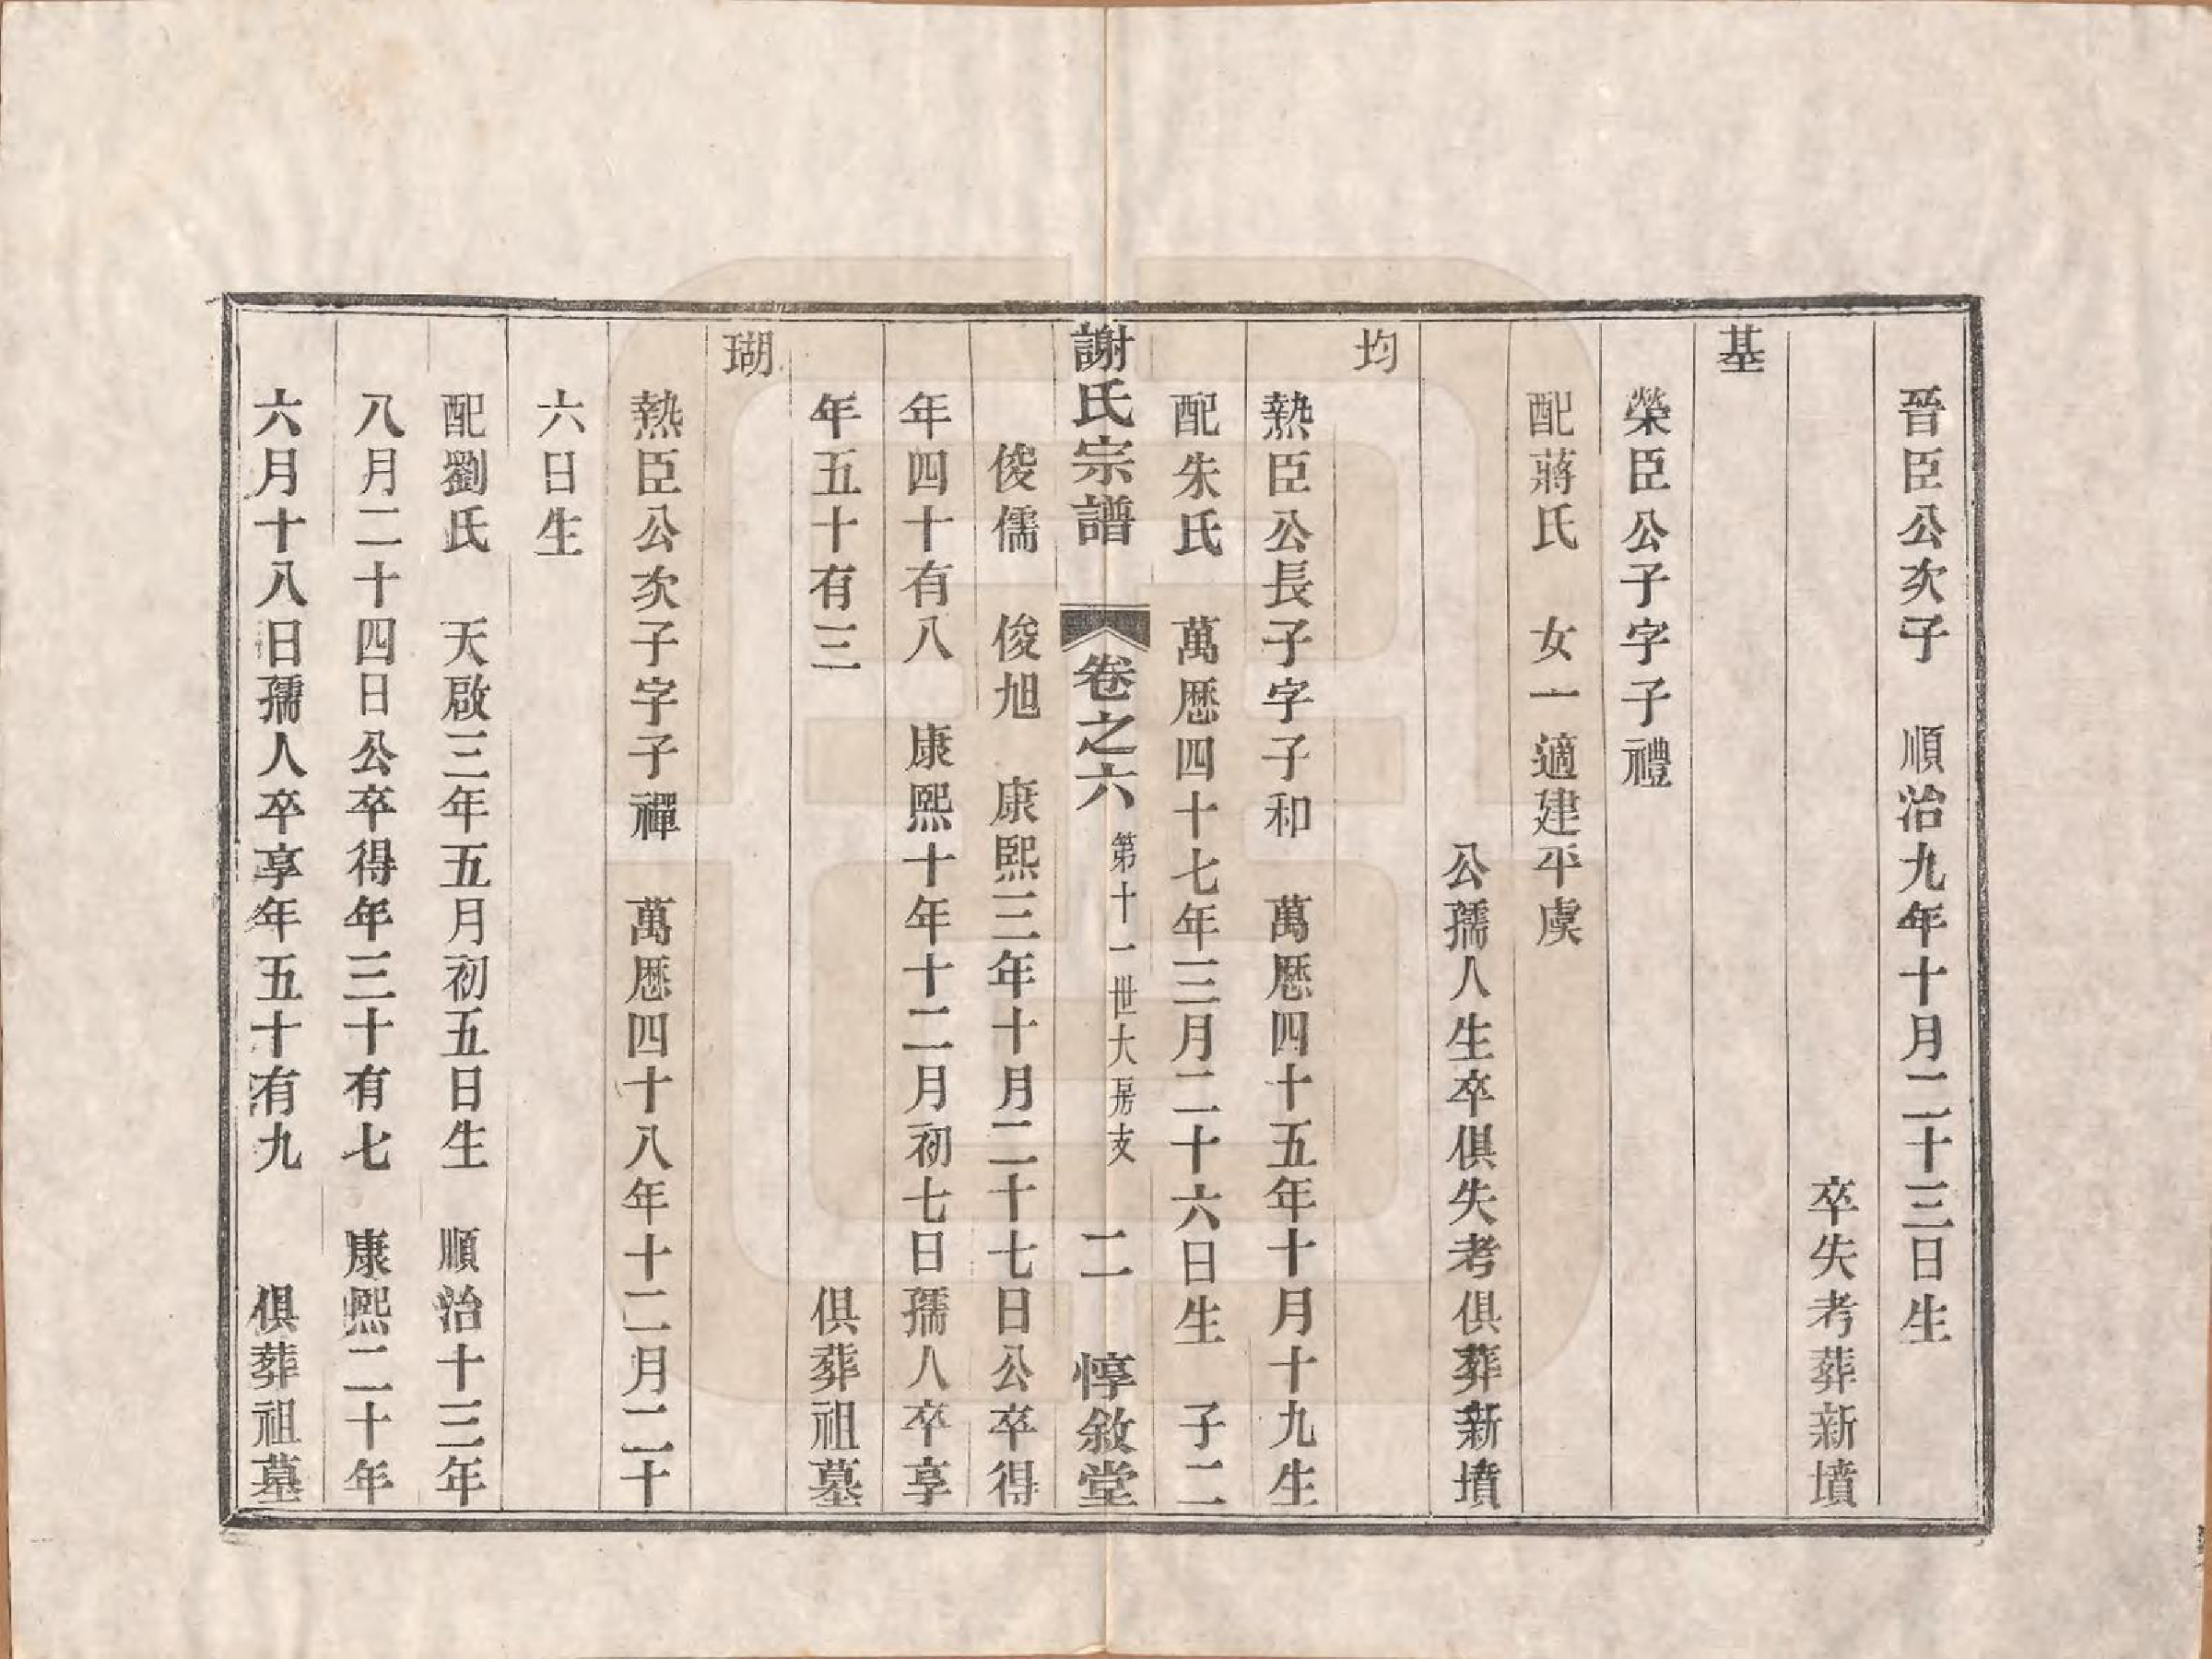 晉臣公次子　順治九年十月二十三日生
卒失考葬新墳
基
榮臣公子字子禮
配蔣氏　女一適建平虞
公孺人生卒俱失考俱葬新墳
均
熱臣公長子字子和　萬歷四十五年十月十九生
配朱氏　萬歷四十七年三月二十六日生　子二
謝氏宗譜　卷之六　第十一世大房支　二　惇敘堂
俊儒　俊旭　康熙三年十月二十七日公卒得
年四十有八　康熙十年十二月初七日孺人卒享
年五十有三　俱葬祖墓
瑚
熱臣公次子字子禪　萬歷四十八年十二月二十
六日生
配劉氏　天啟三年五月初五日生　順治十三年
八月二十四日公卒得年三十有七　康熙二十年
六月十八日孺人卒享年五十有九　俱葬祖墓